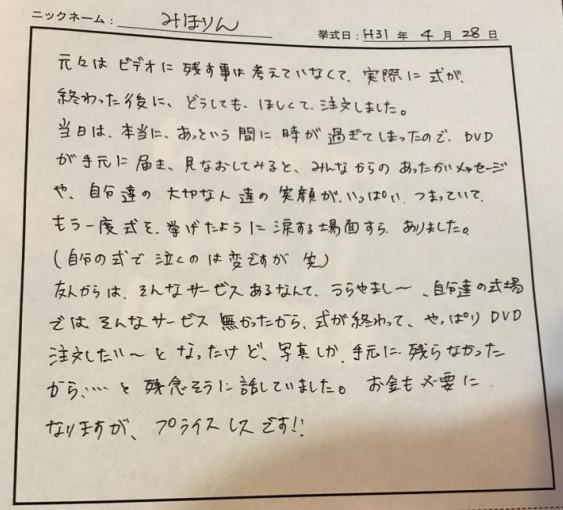 ニックネーム： みほりん
挙式日： H31 年 4 月 28 日
元々は ビデオに 残す事は 考えていなくて、実際に 式が、
終わった後に、どうしても、ほしくて、注文しました。
当日は、本当に、あっという 間に 時が 過ぎてしまったので、DVD
が 手元に 届き、見なおしてみると、みんなからの あったかいメッセージ
や、自分達の 大切な人達の 笑顔が、いっぱい、つまっていて、
もう一度 式を、挙げたように 涙する場面すら、ありました。
(自分の式で 泣くのは 変ですが 笑)
友人からは、そんなサービスあるなんて、うらやまし〜、自分達の式場
では、そんなサービス 無かったから、式が終わって、やっぱり DVD
注文したい〜 と なったけど、写真しか、手元に 残らなかった
から、…… と 残念そうに 話していました。 お金も必要に
なりますが、プライスレスです!!